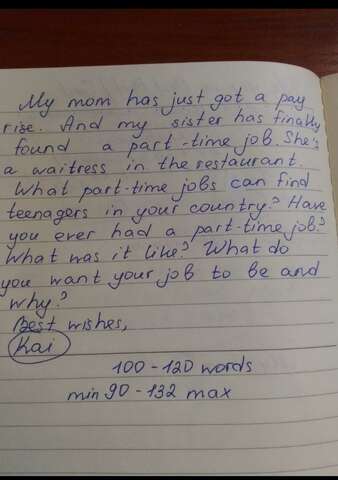 My mom has just got a pay
rise. And my sister has finally
found a part-time job. She's
a waitress in the restaurant.
What part-time jobs can find
teenagers in your country? Have
you ever had a part-time job?
What was it like? What do
you want your job to be and
why?
Best wishes,
Kai
100-120 words
min 90-132 max